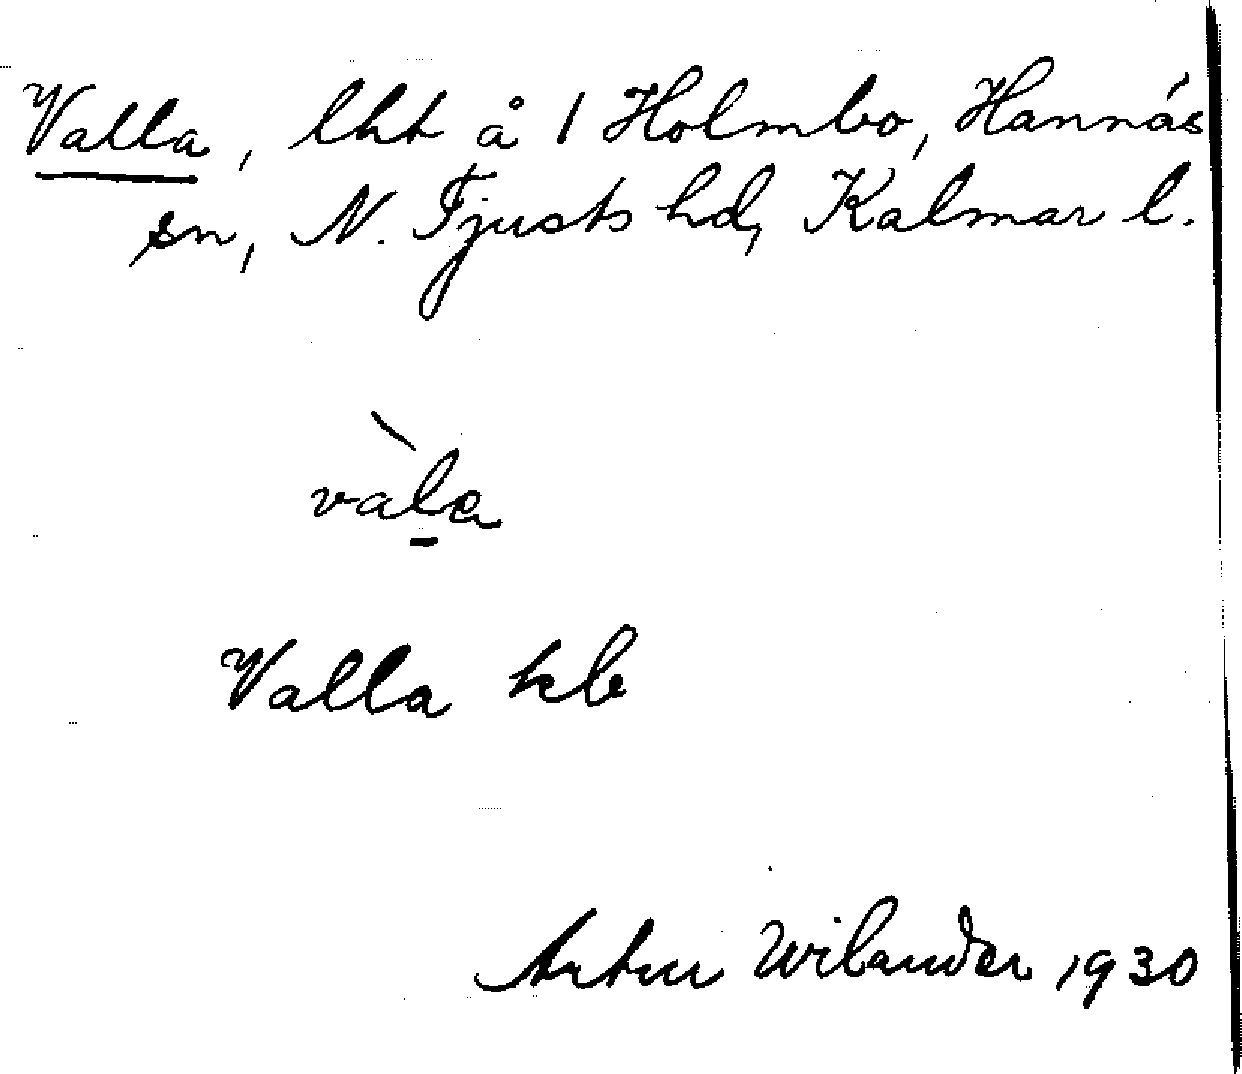 Valla, lht å 1 Holmbo, Hannäs
sn, N. Tjusts hd, Kalmar l.
vàla
Valla kb
Artur Wilander 1930